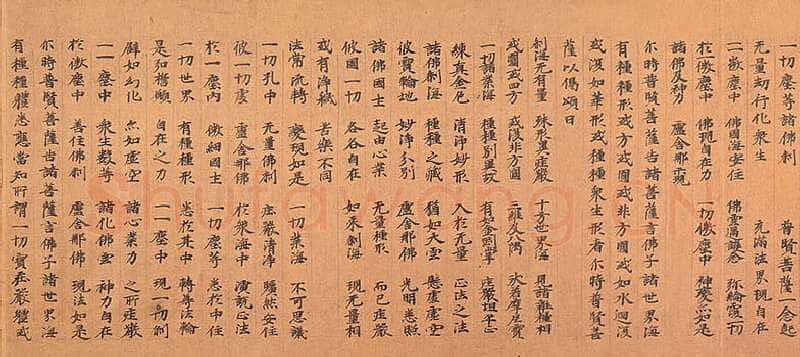 一切塵等諸佛剎 普賢菩薩一念起
无量劫行化衆生 充滿法界現自在
一一微塵中 佛國海安住 佛雲遍護念 弥綸覆一切
於一微塵中 佛現自在力 一切微塵中 神變亦如是
諸佛及神力 盧舍那示現
尒時普賢菩薩告諸菩薩言佛子諸世界海
有種種形或方或圓或非方圓或如水洄澓
或復如華形或種種衆生形者尒時普賢菩
薩以偈頌曰
剎海无有量 殊形異庄嚴 十方世界海 見諸種種相
或圓或四方 或復非方圓 三維及八隅 狀若摩尼寶
一切諸業海 種種別異故 有以金剛掌 庄嚴坦平正
練真金色 清淨妙形 入於无量 正法之法
諸佛剎海 種種之藏 猶如大雲 懸處虛空
彼寶輪地 妙淨分別 盧舍那佛 光明悉照
諸佛國土 起由心業 无量種形 而已庄嚴
彼國一切 各各自在 如來剎海 現无量相
或有淨穢 苦樂不同
法常流轉 變現如是 一切業海 不可思議
一切孔中 无量佛剎 庄嚴清淨 曠然安住
彼一切處 盧舍那佛 於衆海中 演說正法
於一塵內 微細國土 一切塵等 悉於中住
一切世界 有種種形 悉於其中 轉尊法輪
是如稱願 自在之力 一一塵中 現一切剎
譬如幻化 亦如虛空 諸心業力 之所庄嚴
一一塵中 衆生數等 諸化佛雲 神力自在
於微塵中 善住佛剎 盧舍那佛 現法如是
尒時普賢菩薩告諸菩薩言佛子諸世界海
有種種體悉應當知所謂一切寶庄嚴體或
Shufawang.CN